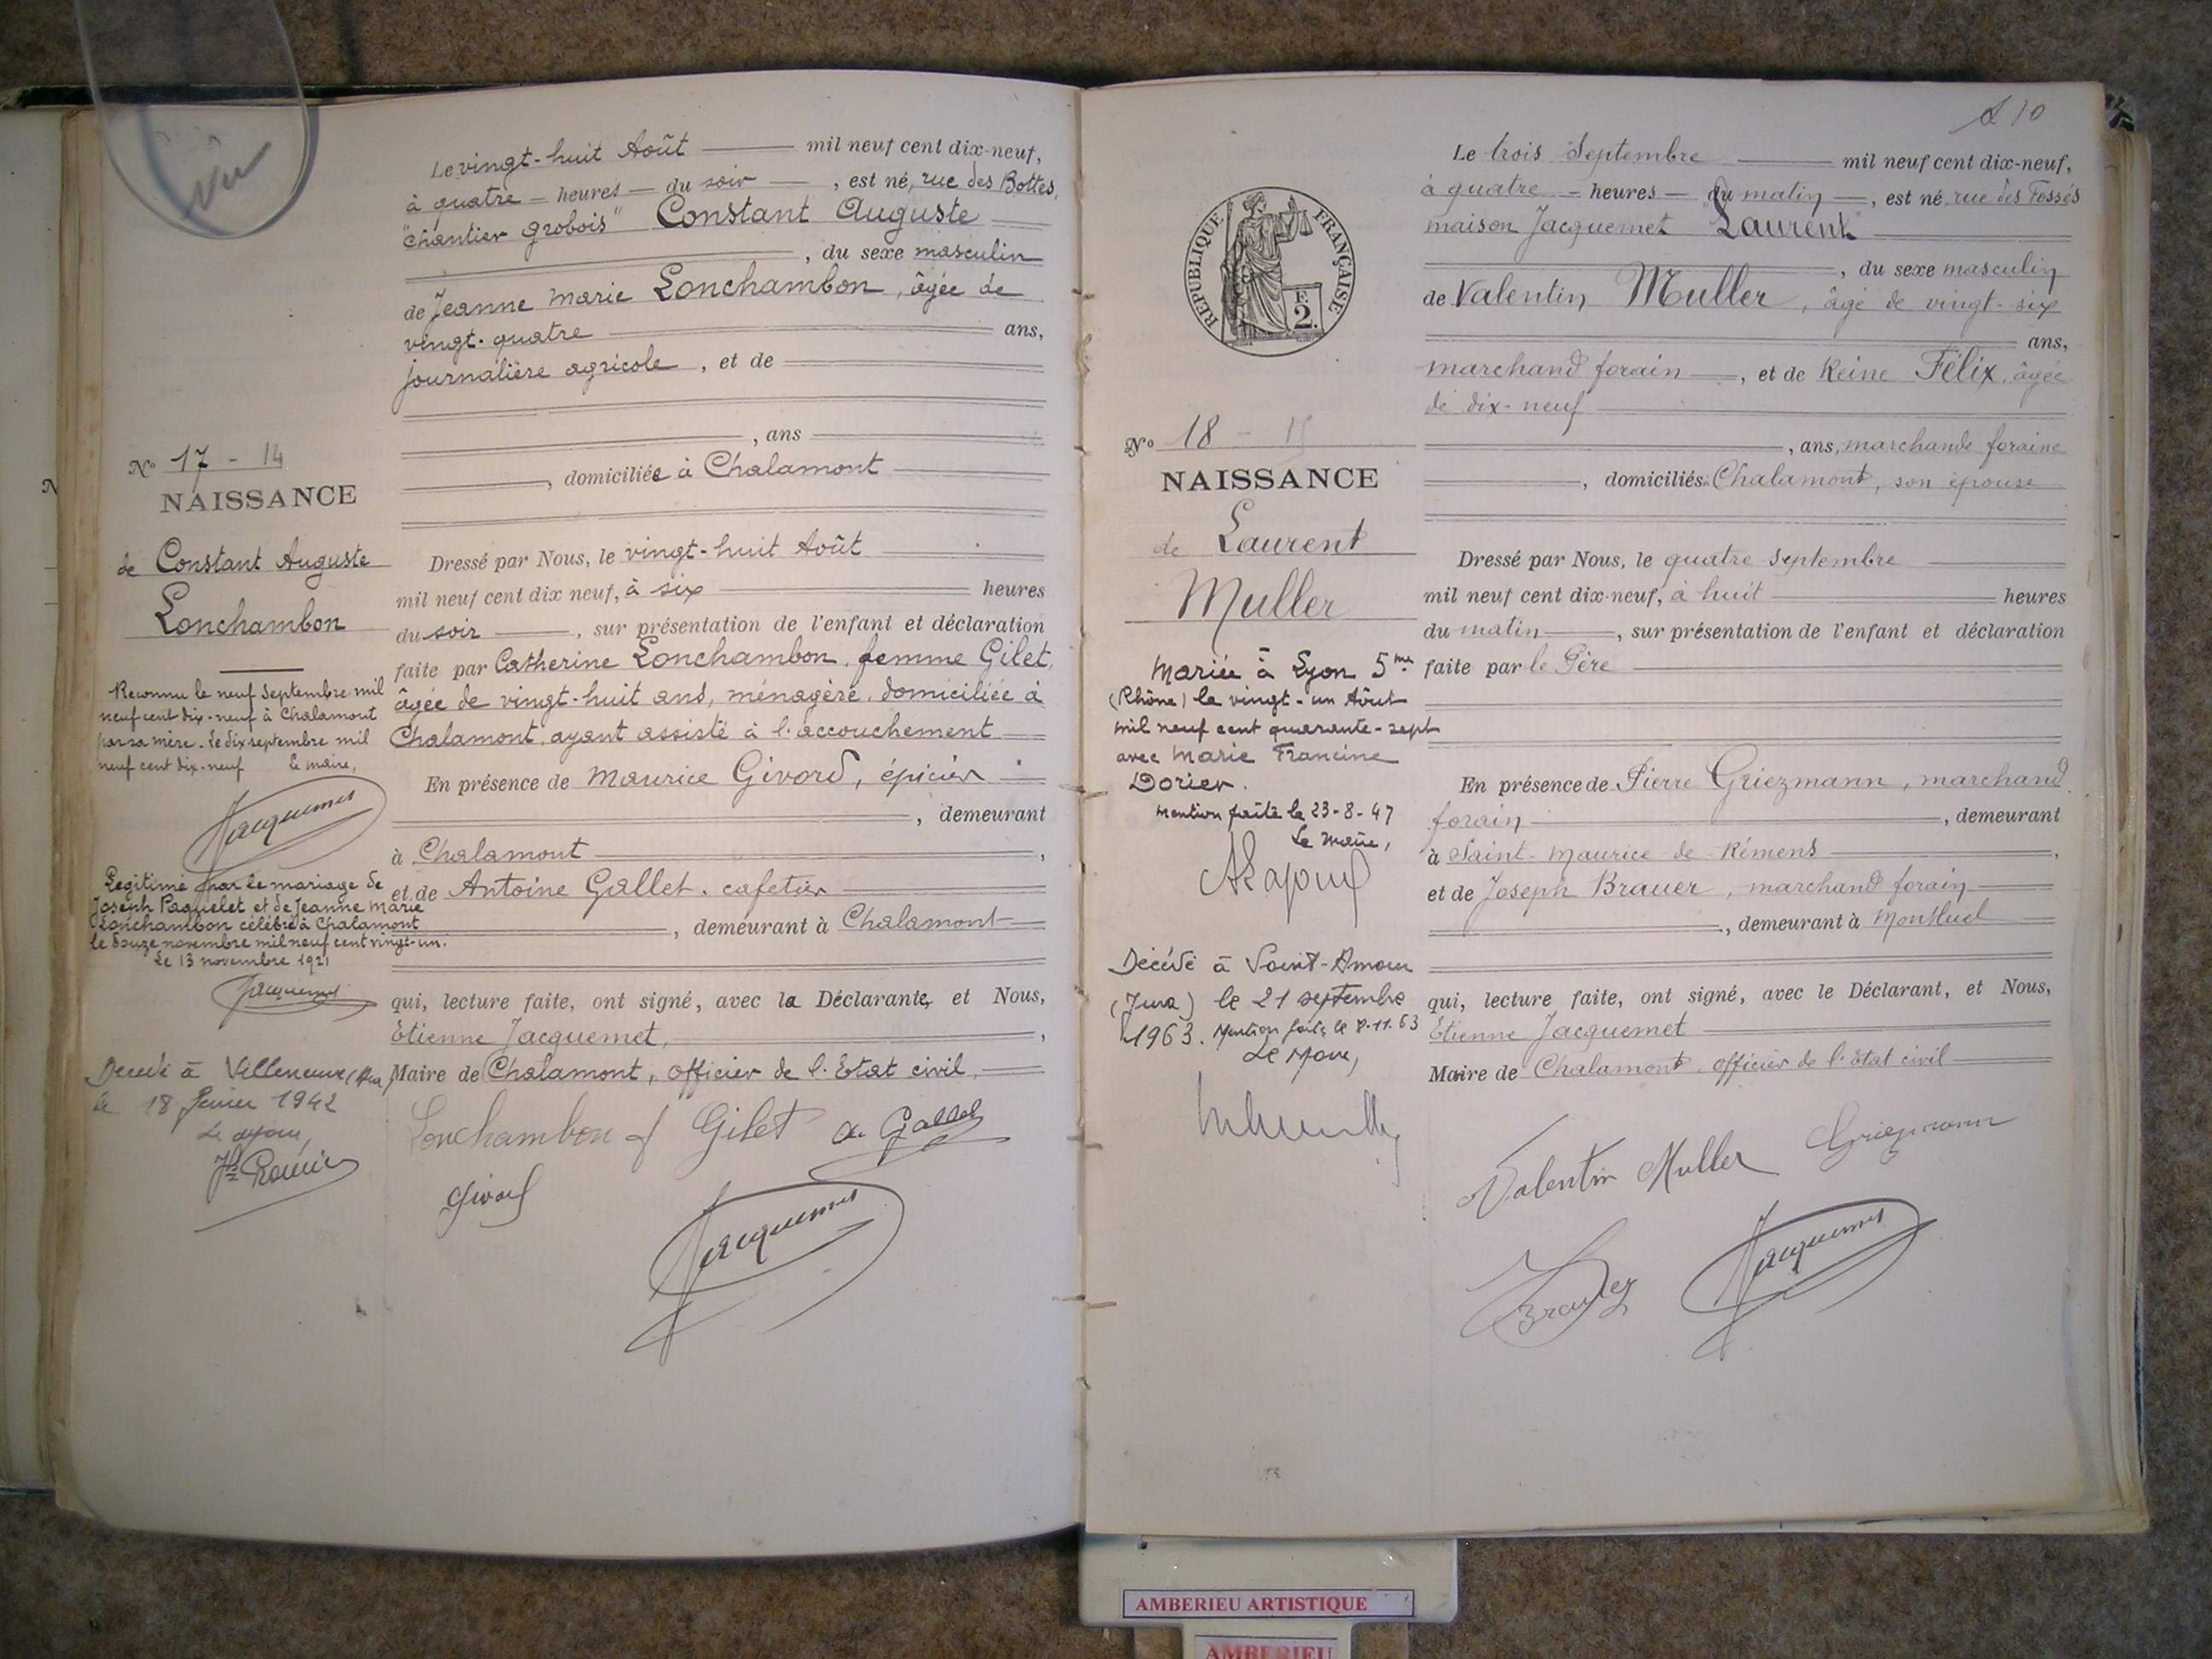 Vu
Le vingt-huit Août mil neuf cent dix-neuf,
à quatre heures du soir, est né, rue des Bottes,
"chantier grobois" Constant Auguste
, du sexe masculin
de Jeanne Marie Lonchambon, âgée de
vingt-quatre ans,
journalière agricole, et de
, ans
, domiciliée à Chalamont
Dressé par Nous, le vingt-huit Août
mil neuf cent dix neuf, à six heures
du soir, sur présentation de l'enfant et déclaration
faite par Catherine Lonchambon, femme Gilet,
âgée de vingt-huit ans, ménagère, domiciliée à
Chalamont, ayant assisté à l'accouchement
En présence de Maurice Givord, épicier
, demeurant
à Chalamont,
et de Antoine Gallet, cafetier
, demeurant à Chalamont
qui, lecture faite, ont signé, avec la Déclarante, et Nous,
Etienne Jacquemet,
Maire de Chalamont, officier de l'Etat civil,
Lonchambon f Gilet a. Gallet
Givord
Jacquemet
No 17 - 14
NAISSANCE
de Constant Auguste
Lonchambon
Reconnu le neuf septembre mil
neuf cent dix-neuf à Chalamont
par sa mère. Le dix septembre mil
neuf cent dix-neuf le maire,
Jacquemet
Légitimé par le mariage de
Joseph Paquelet et de Jeanne Marie
Lonchambon célébré à Chalamont
le douze novembre mil neuf cent vingt-un.
Le 13 novembre 1921
Jacquemet
Décédé à Villeneuve (Ain)
le 18 1942
Le
210
Le trois Septembre mil neuf cent dix-neuf,
à quatre heures du matin, est né rue des Fossés
maison Jacquemet "Laurent"
, du sexe masculin
de Valentin Muller, âgé de vingt-six
ans,
marchand forain, et de Reine Félix, âgée
de dix-neuf
, ans, marchande foraine
, domiciliés à Chalamont, son épouse
Dressé par Nous, le quatre septembre
mil neuf cent dix-neuf, à huit heures
du matin, sur présentation de l'enfant et déclaration
faite par le Père
En présence de Pierre Griezmann, marchand
forain, demeurant
à Saint-Maurice-de-Rémens,
et de Joseph Brauer, marchand forain
, demeurant à Montluel
qui, lecture faite, ont signé, avec le Déclarant, et Nous,
Etienne Jacquemet
Maire de Chalamont, officier de l'Etat civil
Valentin Muller Griezmann
Jacquemet
REPUBLIQUE FRANÇAISE
F.
2.
No 18 - 15
NAISSANCE
de Laurent
Muller
Mariée à Lyon 5me
(Rhône) le vingt-un Août
mil neuf cent quarante-sept
avec Marie Francine
Dorier.
Mention faite le 23-8-47
Le Maire,
Décédé à Saint-Amour
(Jura) le 21 septembre
1963. Mention faite le 8.11.63
Le Maire,
AMBERIEU ARTISTIQUE
AMBERIEU